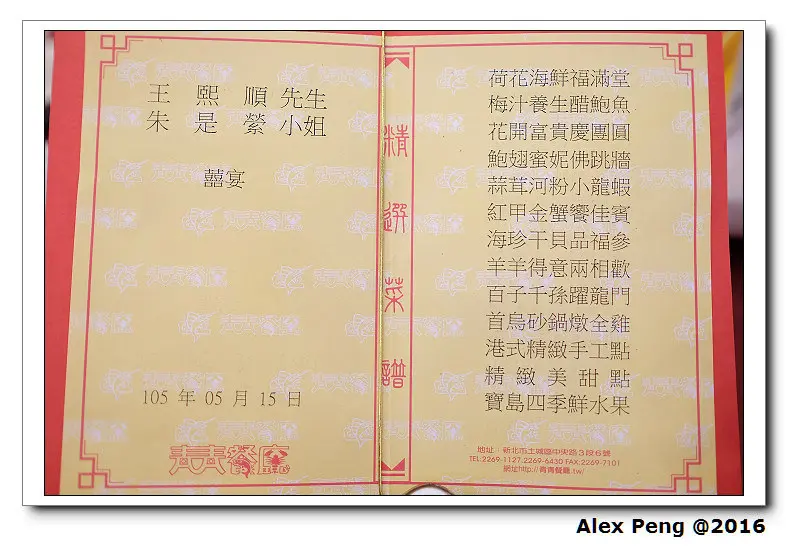 王熙順先生
朱是縈小姐
囍宴
105 年 05 月 15 日
青青餐廳
精選菜譜
荷花海鮮福滿堂
梅汁養生醋鮑魚
花開富貴慶團圓
鮑翅蜜妮佛跳牆
蒜茸河粉小龍蝦
紅甲金蟹饗佳賓
海珍干貝品福參
羊羊得意兩相歡
百子千孫躍龍門
首烏砂鍋燉全雞
港式精緻手工點
精緻美甜點
寶島四季鮮水果
地址：新北市土城區中央路3段6號
TEL:2269-1127.2269-6430 FAX:2269-7101
網址http://青青餐廳.tw/
Alex Peng @2016